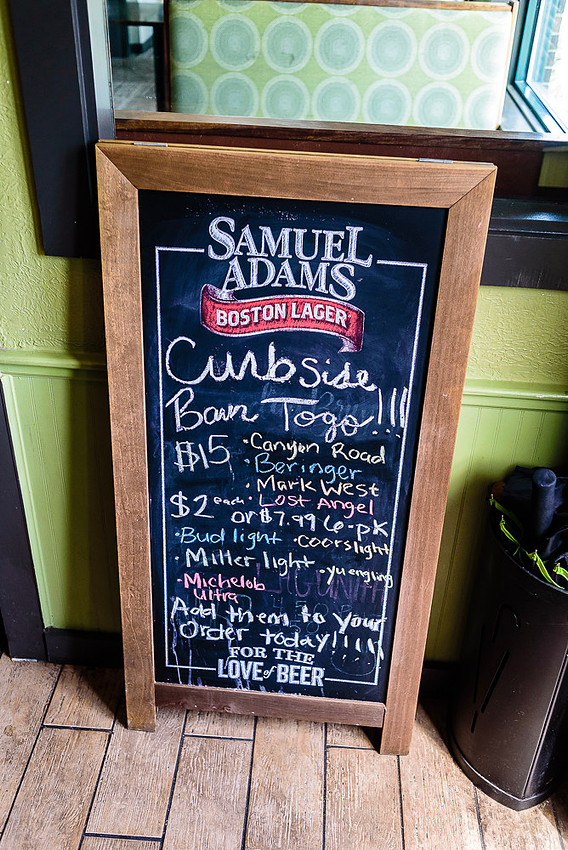 SAMUEL
ADAMS
BOSTON LAGER
Curbside
Bar Togo!!!
$15 · Canyon Road
· Beringer
· Mark West
· Lost Angel
$2 each
or $7.99 6-pk
· Bud light · coors light
Miller light · yuengling
· Michelob
ultra
Add them to your
Order today!!!!
FOR THE
LOVE of BEER